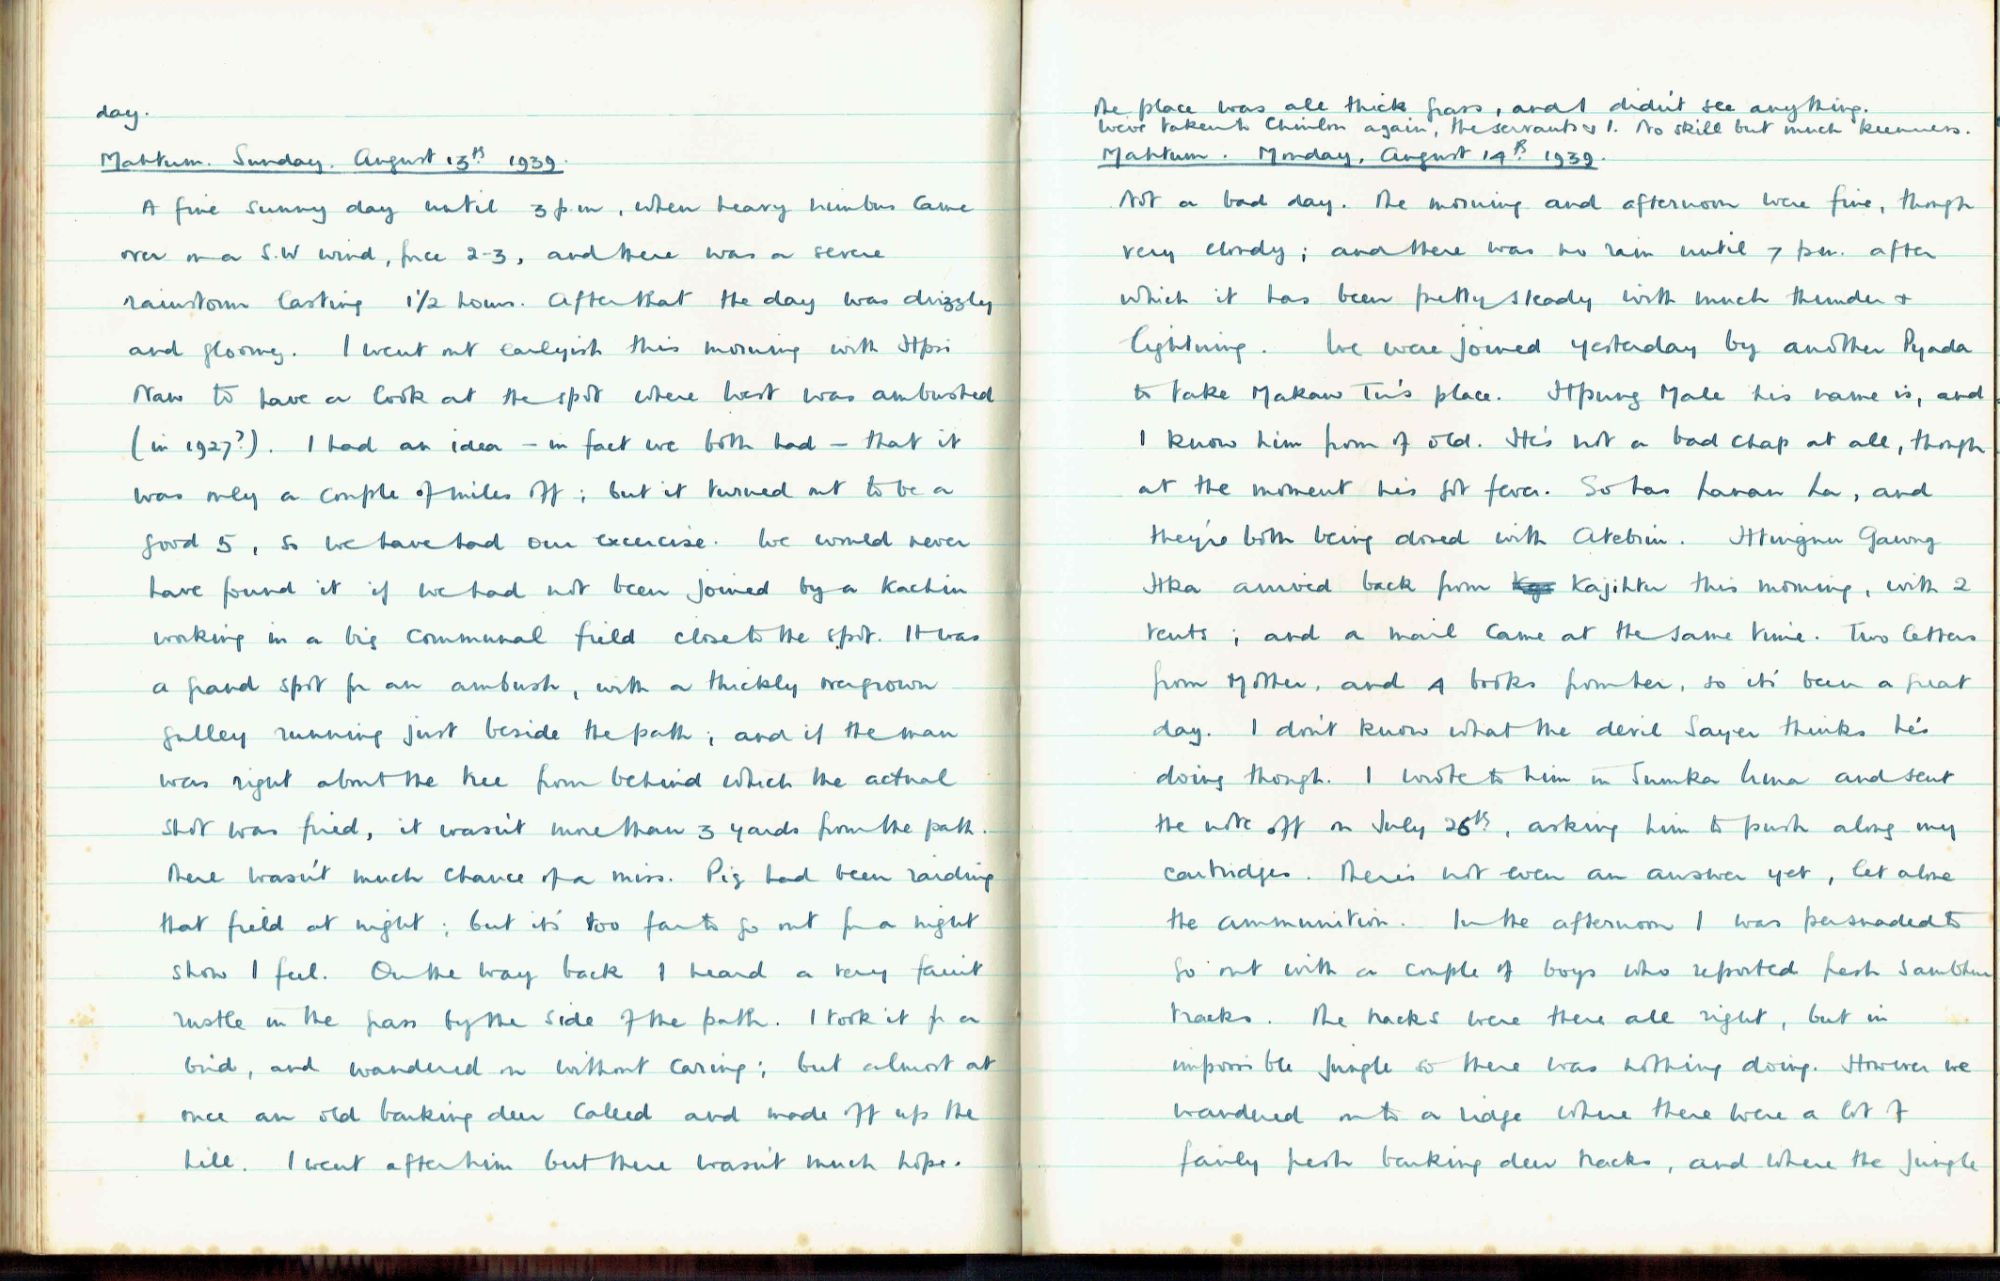 day.
Mahtum. Sunday. August 13th 1939.
A fine sunny day until 3 p.m, when heavy nimbus came
over on a S.W wind, force 2-3, and there was a severe
rainstorm lasting 1 1/2 hours. After that the day was drizzly
and gloomy. I went out earlyish this morning with Htpsi
Naw to have a look at the spot where West was ambushed
(in 1927?). I had an idea - in fact we both had - that it
was only a couple of miles off; but it turned out to be a
good 5, so we have had our excercise. We would never
have found it if we had not been joined by a Kachin
working in a big communal field close to the spot. It was
a grand spot for an ambush, with a thickly overgrown
gulley running just beside the path; and if the man
was right about the tree from behind which the actual
shot was fired, it wasn't more than 3 yards from the path.
There wasn't much chance of a miss. Pig had been raiding
that field at night; but it's too far to go out for a night
show I feel. On the way back I heard a very faint
rustle in the grass by the side of the path. I took it for a
bird, and wandered on without caring; but almost at
once an old barking deer called and made off up the
hill. I went after him but there wasn't much hope.
The place was all thick grass, and I didn't see anything.
We've taken to Chinlon again, the servants & I. No skill but much keenness.
Mahtum. Monday, August 14th. 1939.
Not a bad day. The morning and afternoon were fine, though
very cloudy; and there was no rain until 7 pm. after
which it has been pretty steady with much thunder +
lightning. We were joined yesterday by another Pyada
to take Makaw Tu's place. Htpung Male his name is, and
I know him from of old. He's not a bad chap at all, though
at the moment he's got fever. So has Lanan La, and
they're both being dosed with Atebrin. Htingnu Gawng
Hka arrived back from Kajihtu this morning, with 2
tents; and a mail came at the same time. Two letters
from Mother, and 4 books from her, so it's been a great
day. I don't know what the devil Sayer thinks he's
doing though. I wrote to him in Sumka Uma and sent
the note off on July 26th, asking him to push along my
cartridges. There's not even an answer yet, let alone
the ammunition. In the afternoon I was persuaded to
go out with a couple of boys who reported fresh sambhur
tracks. The tracks were there all right, but in
impossible jungle so there was nothing doing. However we
wandered on to a ridge where there were a lot of
fairly fresh barking deer tracks, and where the jungle